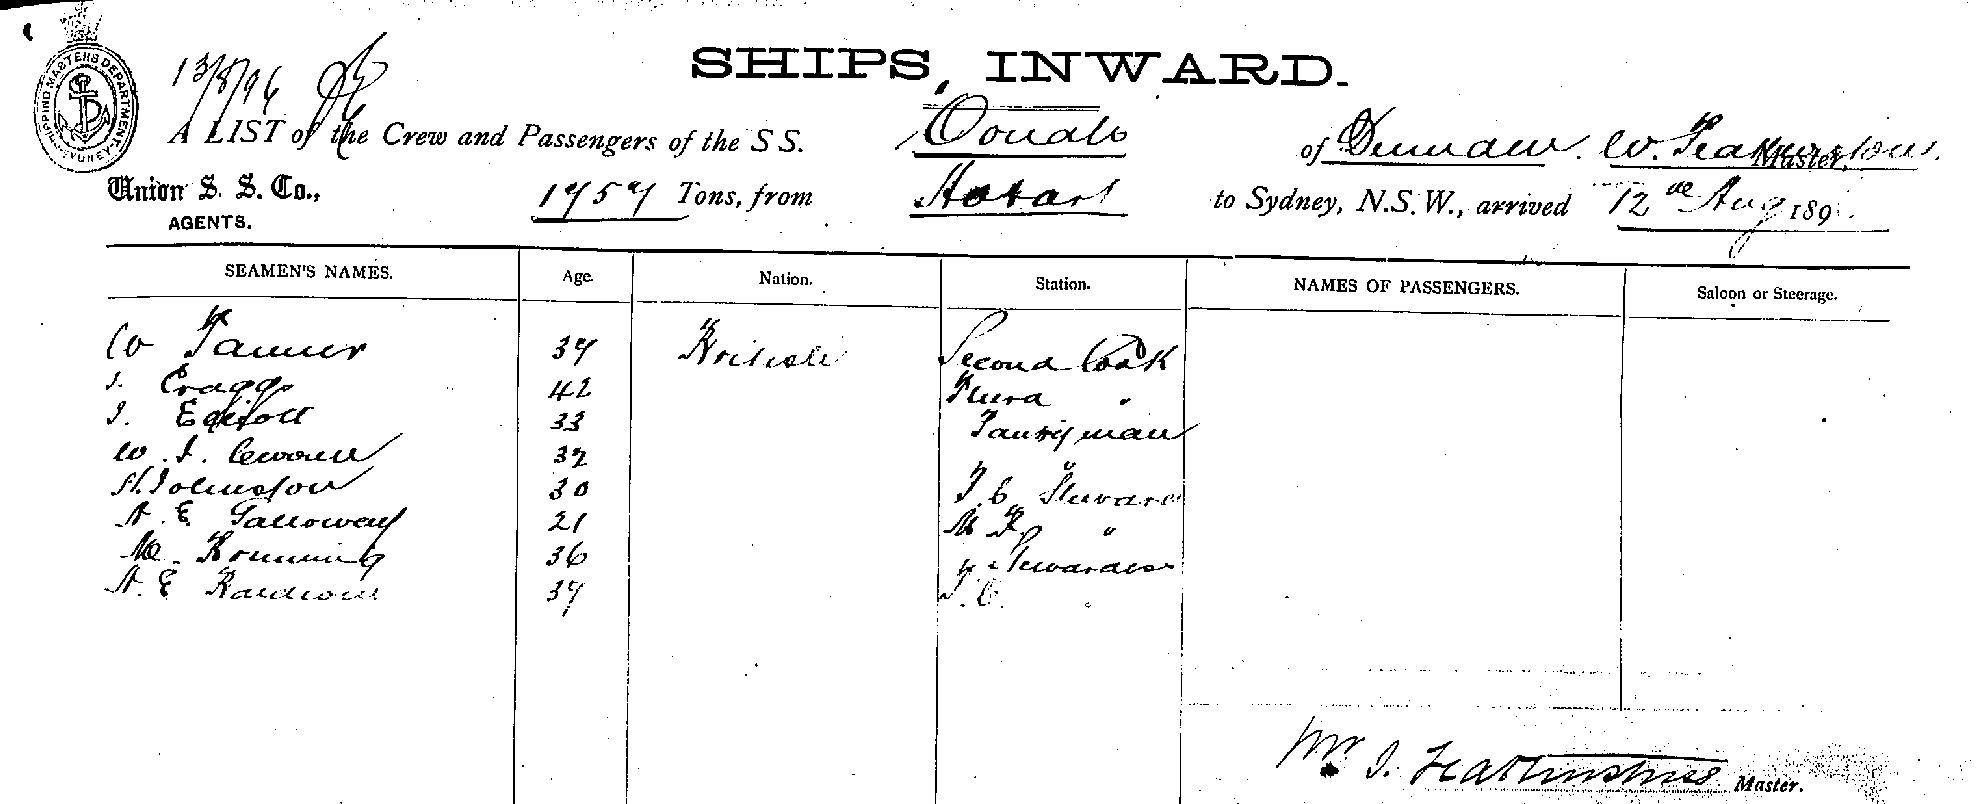 SHIPPING MASTERS DEPARTMENT SYDNEY
13/8/96
SHIPS, INWARD.
A LIST of the Crew and Passengers of the S S. Oonah of Dunedin. W. Featherstone Master,
Union S. S. Co., AGENTS. 1757 Tons, from Hobart to Sydney, N.S.W., arrived 12th Aug 189
SEAMEN'S NAMES. Age. Nation. Station. NAMES OF PASSENGERS. Saloon or Steerage.
W Tanner 37 British Second Cook
J. Craggs 42 Third "
J. Elliott 33 Pantryman
W. J. 32 "
H. Johnston 30 F. C. Steward
A. E Galloway 21 "
M. Brunning 36 Stewardess
A. E 37 F. C. "
Wm J. Featherstone Master.